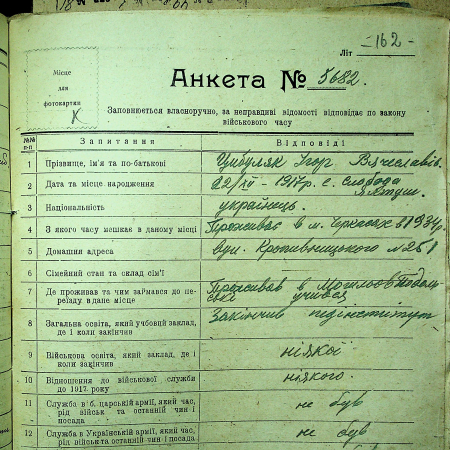 Літ -162-
Місце
для
фотокартки
К
Анкета № 5682.
Заповнюється власноручно, за неправдиві відомості відповідає по закону
військового часу
№№
п-п
Запитання
Відповіді
1 Прізвище, ім'я та по-батькові Цибуляк Ігор Вячеславів.
2 Дата та місце народження 22/IV - 1917р. с. Слобода
Ялтуш.
3 Національність українець.
4 З якого часу мешкав в даному місці Проживає в м. Черкасах з 1934р.
5 Домашня адреса вул. Кропивницького №25
6 Сімейний стан та склад сім'ї
7 Де проживав та чим займався до пе-
реїзду в дане місце
Проживав в Могилеві Подоль-
ські учився
8 Загальна освіта, який учбовий заклад,
де і коли закінчив
Закінчив підінститут
9 Військова освіта, який заклад, де і
коли закінчив
ніякої
10 Відношення до військової служби
до 1917 року
ніякого.
11 Служба в б. царській армії, який час,
рід військ та останній чин і
посада
не був
12 Служба в Українській армії, який час,
рід військ та останній чин і посада
не був